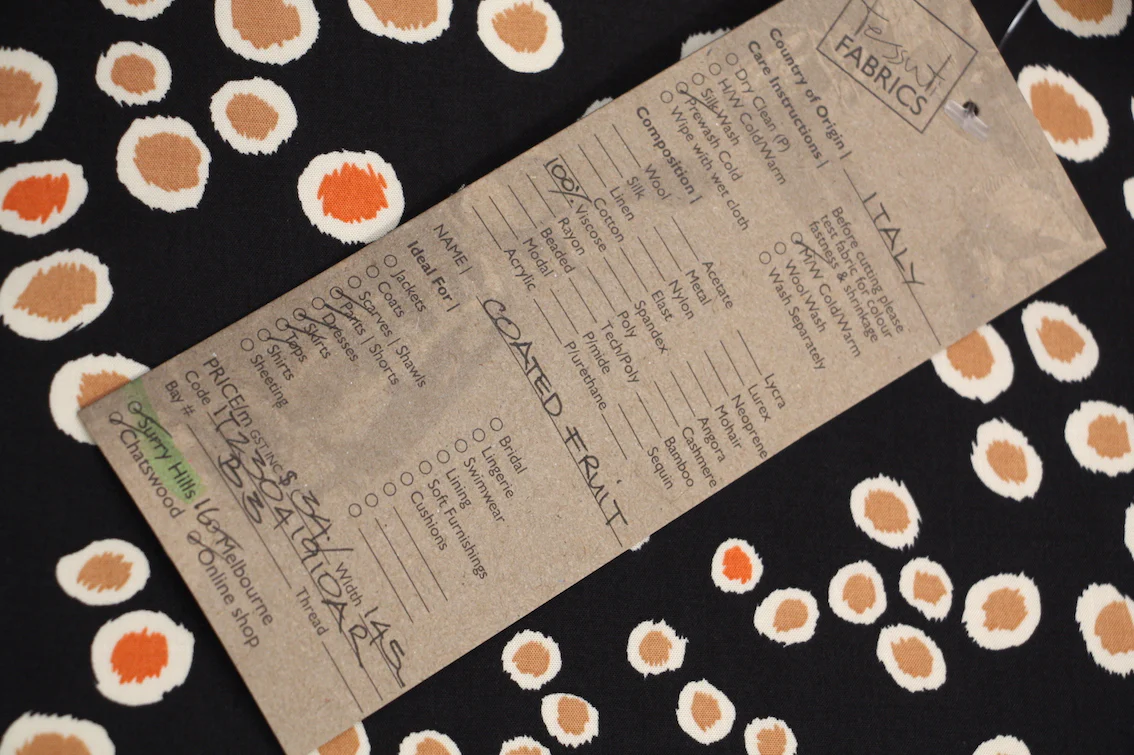 Tessuti
FABRICS
Country of Origin | ITALY
Care Instructions |
Before cutting please
test fabric for colour
fastness & shrinkage
Dry Clean (P)
H/W Cold/Warm
Silk Wash
Prewash Cold
Wipe with wet cloth
M/W Cold/Warm
Wool Wash
Wash Separately
Composition |
Wool
Silk
Linen
Cotton
100% Viscose
Rayon
Beaded
Modal
Acrylic
Acetate
Metal
Nylon
Elast
Spandex
Poly
Tech/Poly
P/mide
P/urethane
Lycra
Lurex
Neoprene
Mohair
Angora
Cashmere
Bamboo
Sequin
NAME | COATED FRUIT
Ideal For |
Jackets
Coats
Scarves | Shawls
Pants | Shorts
Dresses
Skirts
Tops
Shirts
Sheeting
Bridal
Lingerie
Swimwear
Lining
Soft Furnishings
Cushions
PRICE/m GST INC $ Width 145
Code
Bay # Thread
Surry Hills Melbourne
Chatswood Online shop